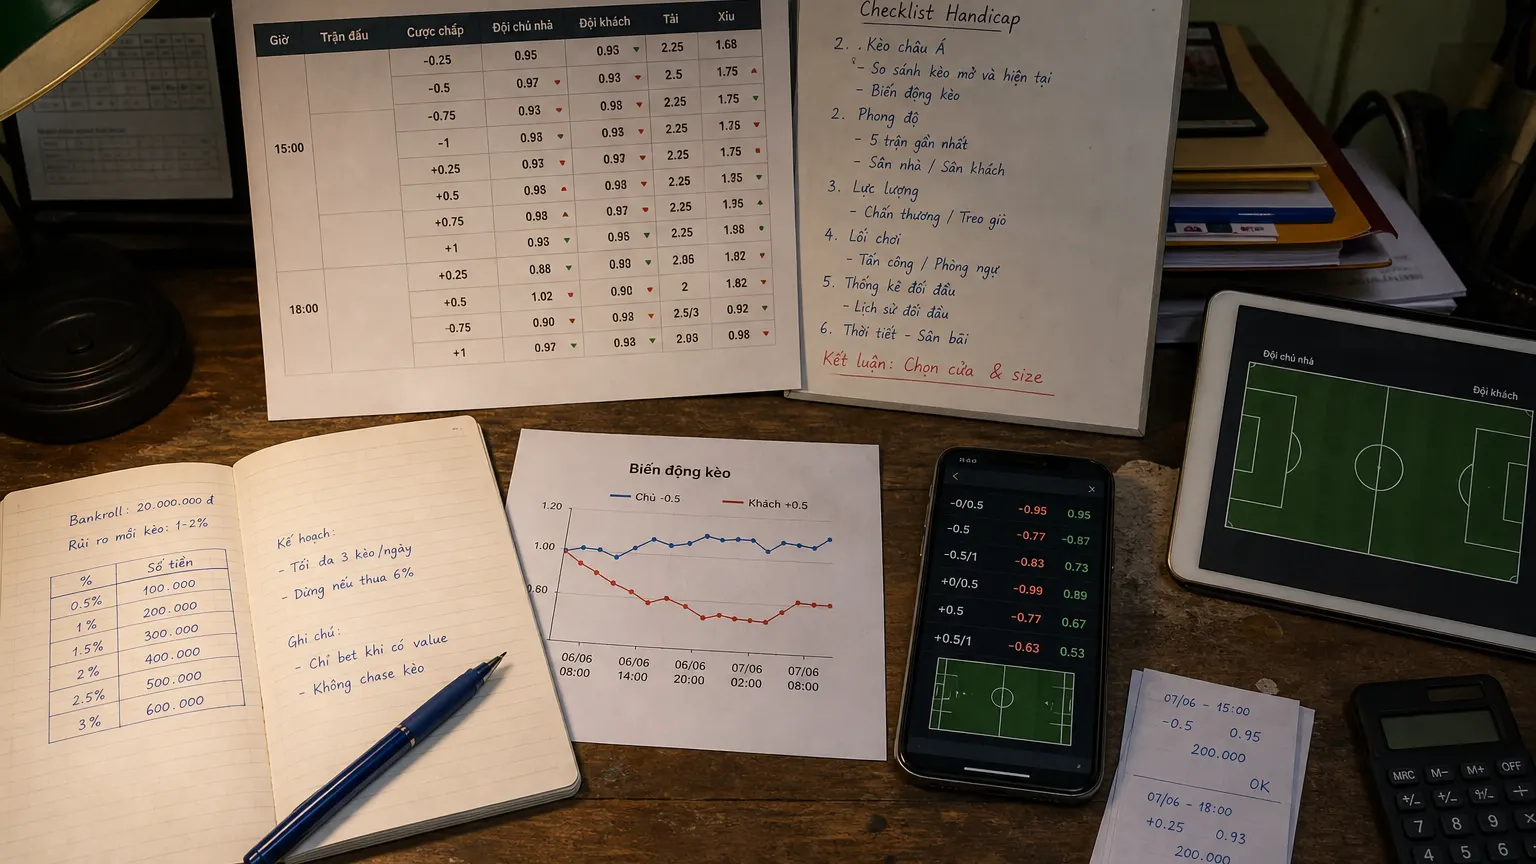 Giờ Trận đấu Cược chấp Đội chủ nhà Đội khách Tải Xỉu
-0.25 0.95 0.93 2.25 1.68
-0.5 0.97 0.93 2.5 1.75
-0.75 0.93 0.98 2.25 1.75
15:00 -1 0.93 0.93 2.25 1.35
+0.25 0.93 0.97 2.25 1.75
+0.5 0.98 0.98 2.25 1.95
+0.75 0.98 0.97 2.25 1.95
+1 0.93 0.96 2.25 1.98
+0.25 0.88 0.93 2.06 1.82
18:00 +0.5 1.02 0.90 2 1.82
-0.75 0.90 0.93 2.5/3 0.92
+1 0.97 0.93 2.03 0.98
Checklist Handicap
2. . Kèo châu Á
- So sánh kèo mở và hiện tại
- Biến động kèo
2. Phong độ
- 5 trận gần nhất
- Sân nhà / Sân khách
3. Lực lượng
- Chấn thương / Treo giò
4. Lối chơi
- Tấn công / Phòng ngự
5. Thống kê đối đầu
- Lịch sử đối đầu
6. Thời tiết - Sân bãi
Kết luận: Chọn cửa & size
Đội chủ nhà
Đội khách
Bankroll: 20.000.000 đ
Rủi ro mỗi kèo: 1-2%
% Số tiền
0.5% 100.000
1% 200.000
1.5% 300.000
2% 400.000
2.5% 500.000
3% 600.000
Kế hoạch:
- Tối đa 3 kèo/ngày
- Dừng nếu thua 6%
Ghi chú:
- Chỉ bet khi có value
- Không chase kèo
Biến động kèo
Chủ -0.5 Khách +0.5
1.20
1.00
0.60
06/06 06/06 06/06 07/06 07/06
08:00 14:00 20:00 02:00 08:00
-0/0.5 -0.95 0.95
-0.5 -0.77 -0.87
-0.5/1 -0.83 0.73
+0/0.5 -0.99 0.89
+0.5 -0.77 0.67
+0.5/1 -0.63 0.53
07/06 - 15:00
-0.5 0.95
200.000
OK
07/06 - 18:00
+0.25 0.93
200.000
MRC M- M+ OFF
7 8 9 ×
4 5 6